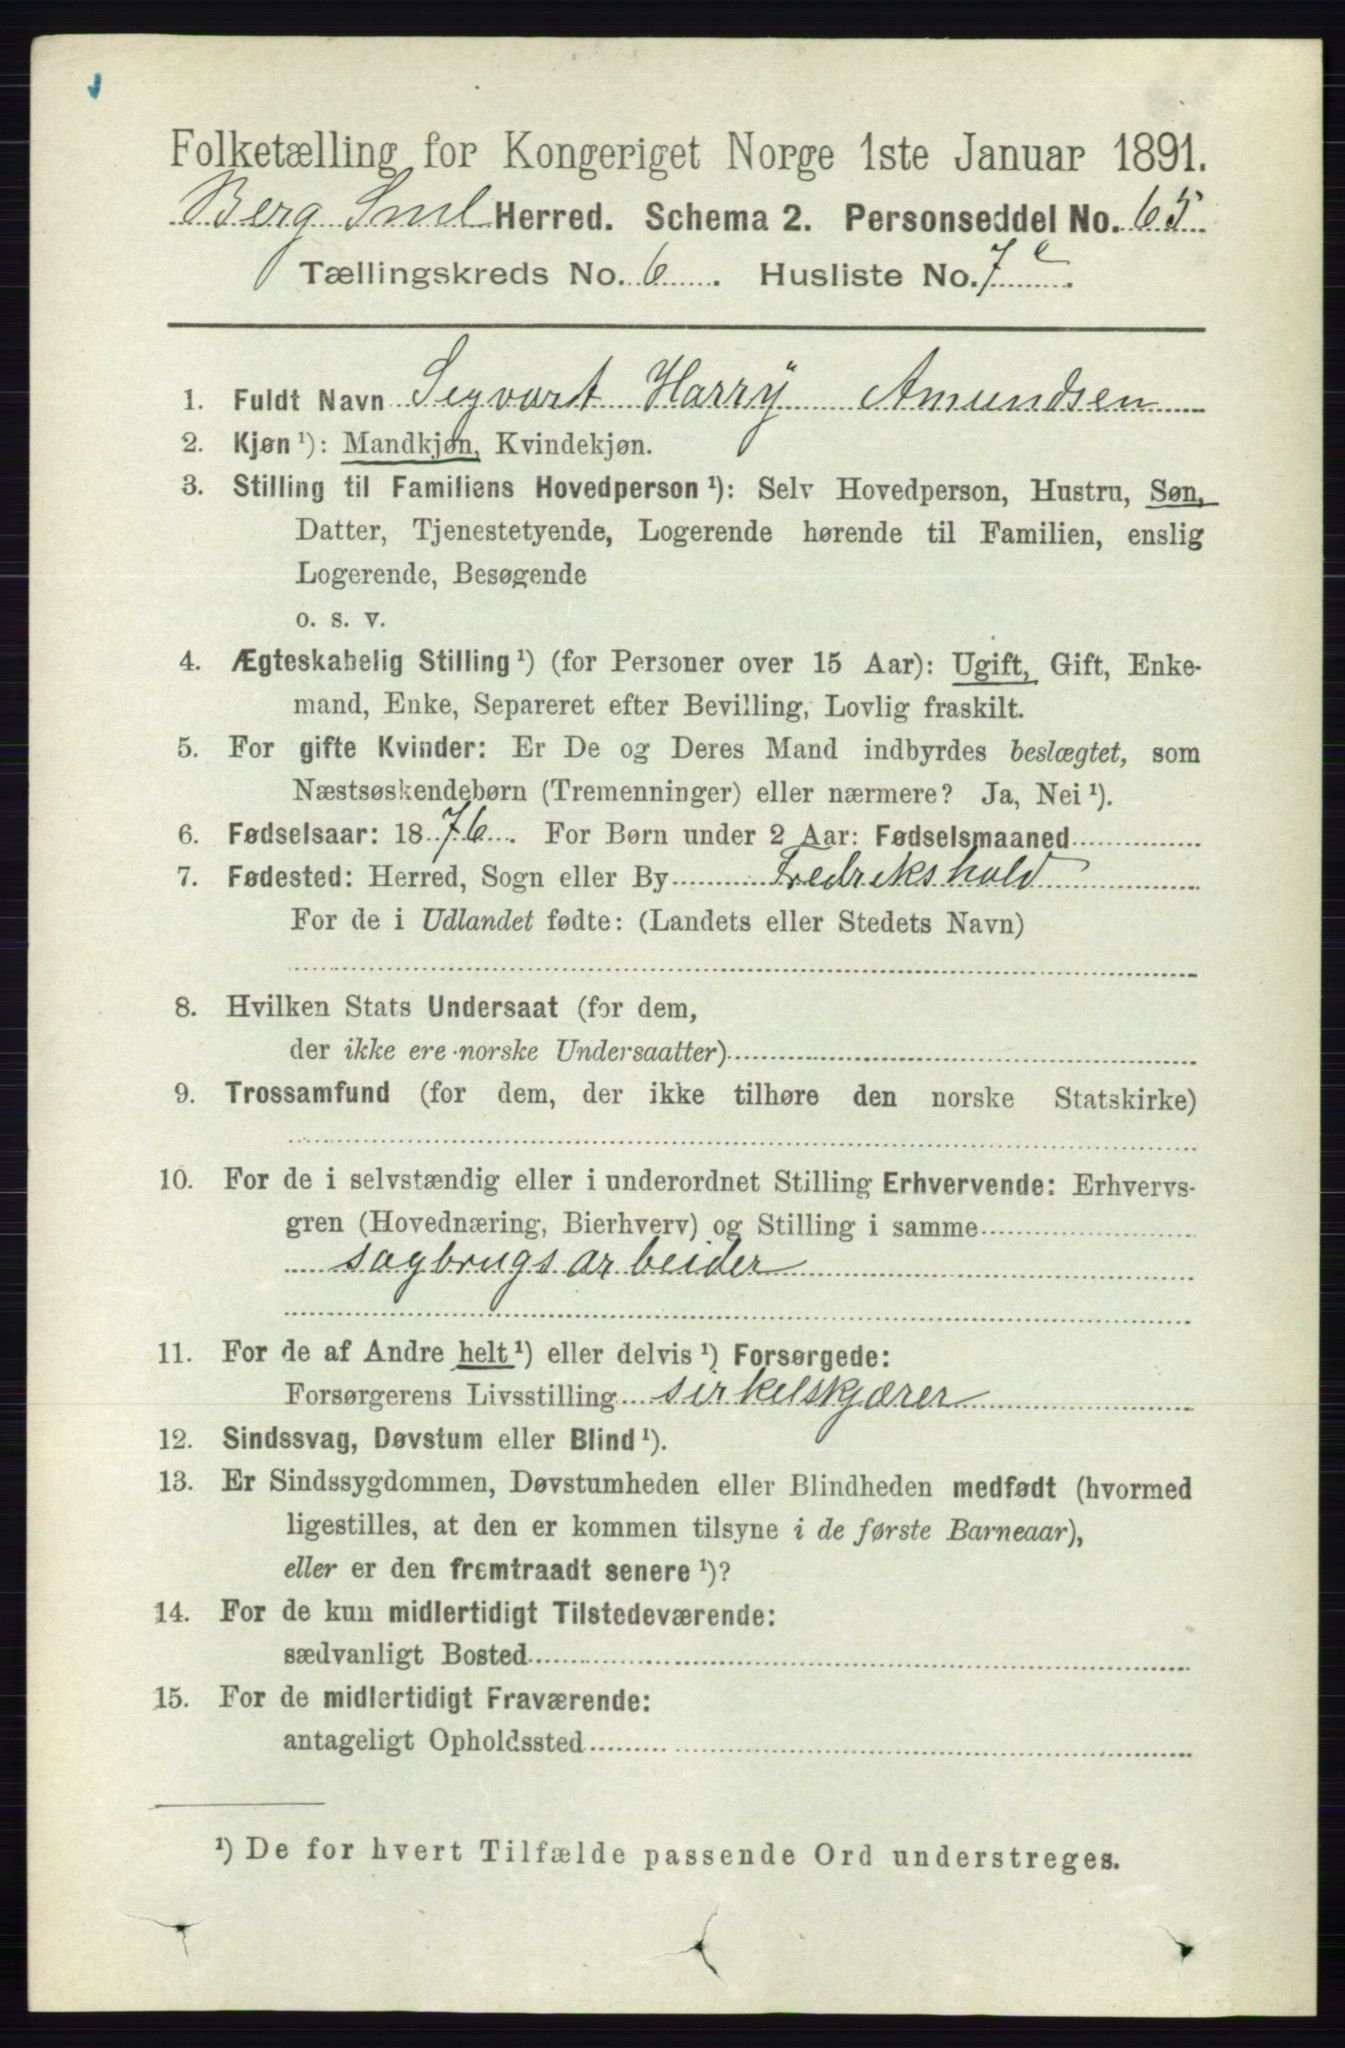 Folketælling for Kongeriget Norge 1ste Januar 1891.
Berg Sml Herred. Schema 2. Personseddel No. 65
Tællingskreds No. 6. Husliste No. 7 c.
1. Fuldt Navn Segvart Harrÿ Amundsen
2. Kjøn ¹): Mandkjøn, Kvindekjøn.
3. Stilling til Familiens Hovedperson ¹): Selv Hovedperson, Hustru, Søn,
Datter, Tjenestetyende, Logerende hørende til Familien, enslig
Logerende, Besøgende
o. s. v.
4. Ægteskabelig Stilling ¹) (for Personer over 15 Aar): Ugift, Gift, Enke-
mand, Enke, Separeret efter Bevilling, Lovlig fraskilt.
5. For gifte Kvinder: Er De og Deres Mand indbyrdes beslægtet, som
Næstsøskendebørn (Tremenninger) eller nærmere? Ja, Nei ¹).
6. Fødselsaar: 1876. For Børn under 2 Aar: Fødselsmaaned
7. Fødested: Herred, Sogn eller By Fredrikshald
For de i Udlandet fødte: (Landets eller Stedets Navn)
8. Hvilken Stats Undersaat (for dem,
der ikke ere norske Undersaatter)
9. Trossamfund (for dem, der ikke tilhøre den norske Statskirke)
10. For de i selvstændig eller i underordnet Stilling Erhvervende: Erhvervs-
gren (Hovednæring, Bierhverv) og Stilling i samme
sagbrugsarbeider
11. For de af Andre helt ¹) eller delvis ¹) Forsørgede:
Forsørgerens Livsstilling sirkelskjærer
12. Sindssvag, Døvstum eller Blind ¹).
13. Er Sindssygdommen, Døvstumheden eller Blindheden medfødt (hvormed
ligestilles, at den er kommen tilsyne i de første Barneaar),
eller er den fremtraadt senere ¹)?
14. For de kun midlertidigt Tilstedeværende:
sædvanligt Bosted
15. For de midlertidigt Fraværende:
antageligt Opholdssted
¹) De for hvert Tilfælde passende Ord understreges.